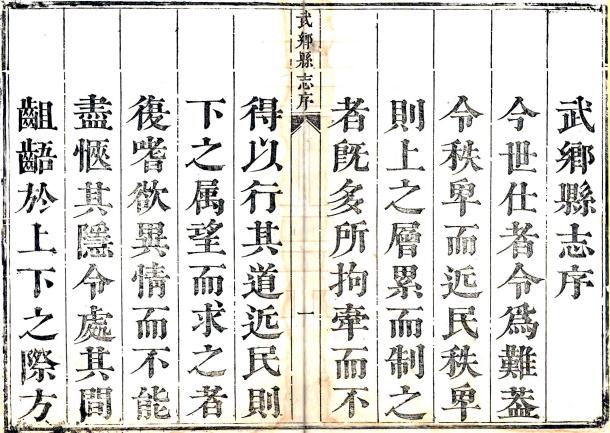 武鄉縣志序
今世仕者令爲難葢
令秩卑而近民秩卑
則上之層累而制之
者旣多所拘牽而不
武鄉縣志序
一
得以行其道近民則
下之属望而求之者
復嗜欲異情而不能
盡愜其隱令處其間
齟齬於上下之際方